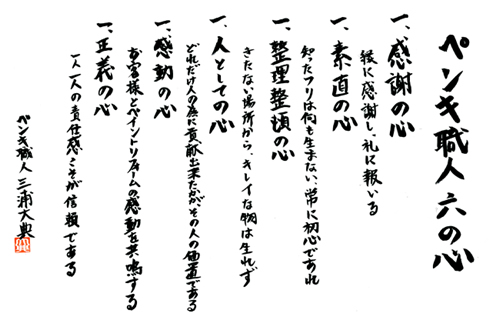 ペンキ職人 六の心
一、感謝の心
縁に感謝し、礼に報いる
一、素直の心
知ったフリは何も生まない、常に初心であれ
一、整理整頓の心
きたない場所から、キレイな物は生れず
一、人としての心
どれだけ人の為に貢献出来たかがその人の価値である
一、感動の心
お客様とペイントリフォームの感動を共鳴する
一、正義の心
一人一人の責任感こそが信頼である
ペンキ職人 三浦大典